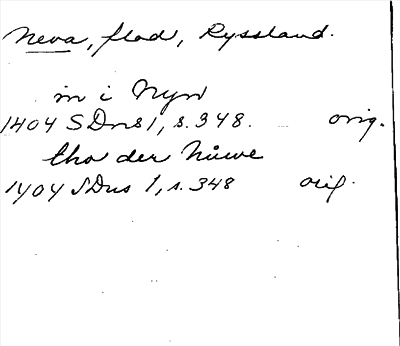 Neva, flod, Ryssland.
in i Nyw
1404 SDns 1, s. 348. orig.
tho der Nüwe
1404 SDns 1, s. 348 orig.